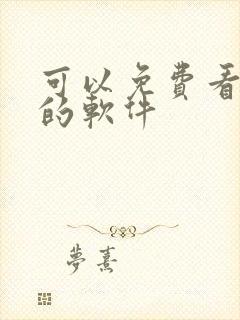 可以免費看
的軟件
夢熹